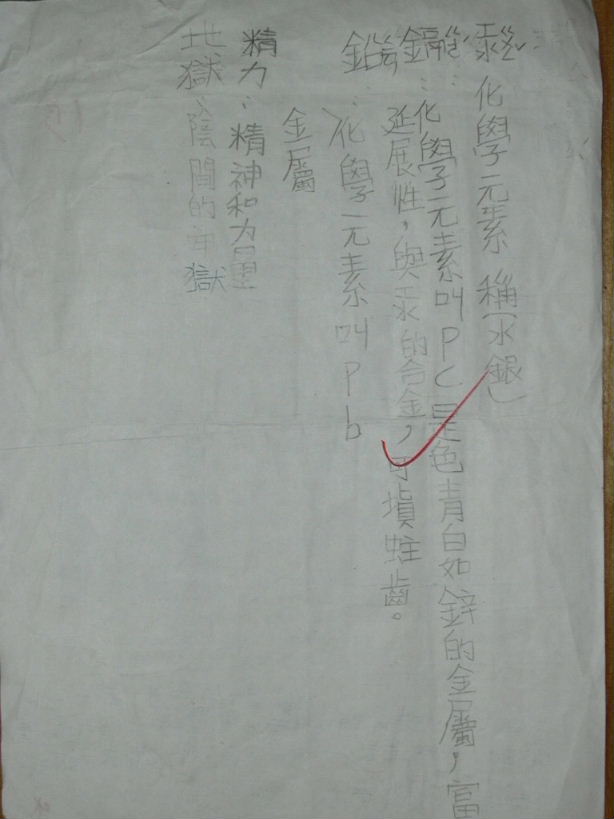 汞ㄍㄨㄥˇ：化學元素 稱(水銀)
鎘ㄍㄜˊ：化學元素叫PC是色青白如鋅的金屬，富
延展性，與汞的合金，可填蛀齒。
鉛ㄑㄧㄢ：化學元素叫Pb
金屬
精力：精神和力量
地獄：陰間的牢獄